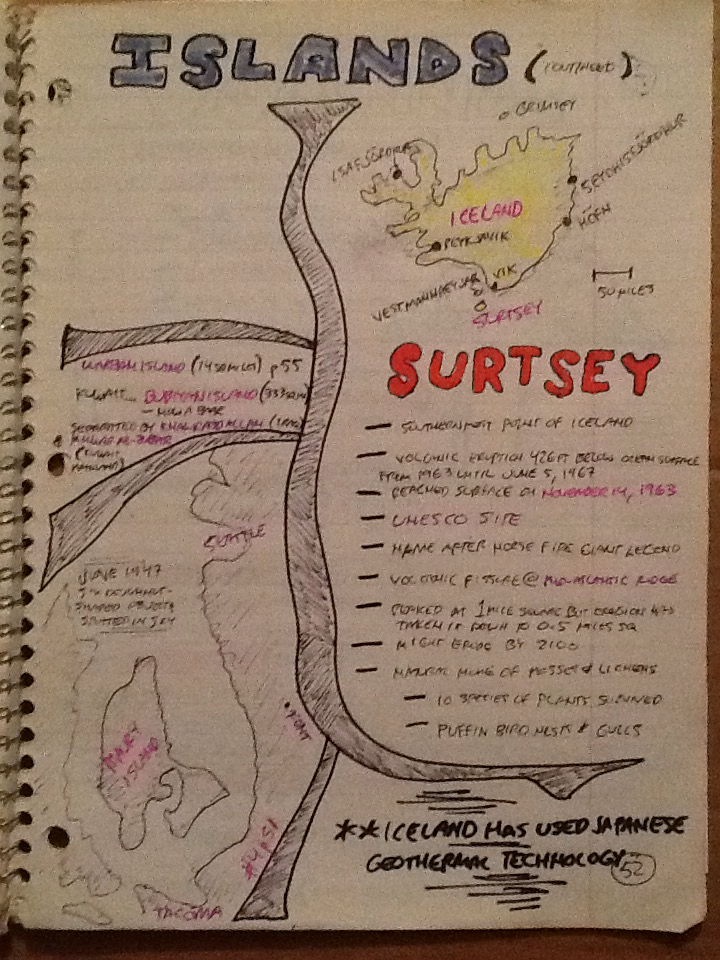 ISLANDS (CONTINUED)
GRIMSEY
ISAFJÖRDUR
SEYDHISFJÖRDHUR
ICELAND
HÖFN
REYKJAVIK
VIK
VESTMANNAEYJAR
50 MILES
SURTSEY
WARBAH ISLAND p 55
KUWAIT... BUBIYAN ISLAND
SEPARATED BY KHAWR ABD ALLAH (IRAQ)
SEATTLE
JUNE 1947
SHAPED OBJECTS
SPOTTED IN SKY
KENT
MAURY
ISLAND
TACOMA
SURTSEY
— SOUTHERNMOST POINT OF ICELAND
— VOLCANIC ERUPTION 426 FT BELOW OCEAN SURFACE
FROM 1963 UNTIL JUNE 5, 1967
— REACHED SURFACE ON NOVEMBER 14, 1963
— UNESCO SITE
— NAME AFTER NORSE FIRE GIANT LEGEND
— VOLCANIC FISSURE @ MID-ATLANTIC RIDGE
— PEAKED AT 1 MILE SQUARE BUT EROSION HAS
TAKEN IT DOWN TO 0.5 MILES SQ
— MIGHT ERODE BY 2100
— NATURAL HOME OF MOSSES & LICHENS
— 10 SPECIES OF PLANTS SURVIVED
— PUFFIN BIRD NESTS & GULLS
**ICELAND HAS USED JAPANESE
GEOTHERMAL TECHNOLOGY
52